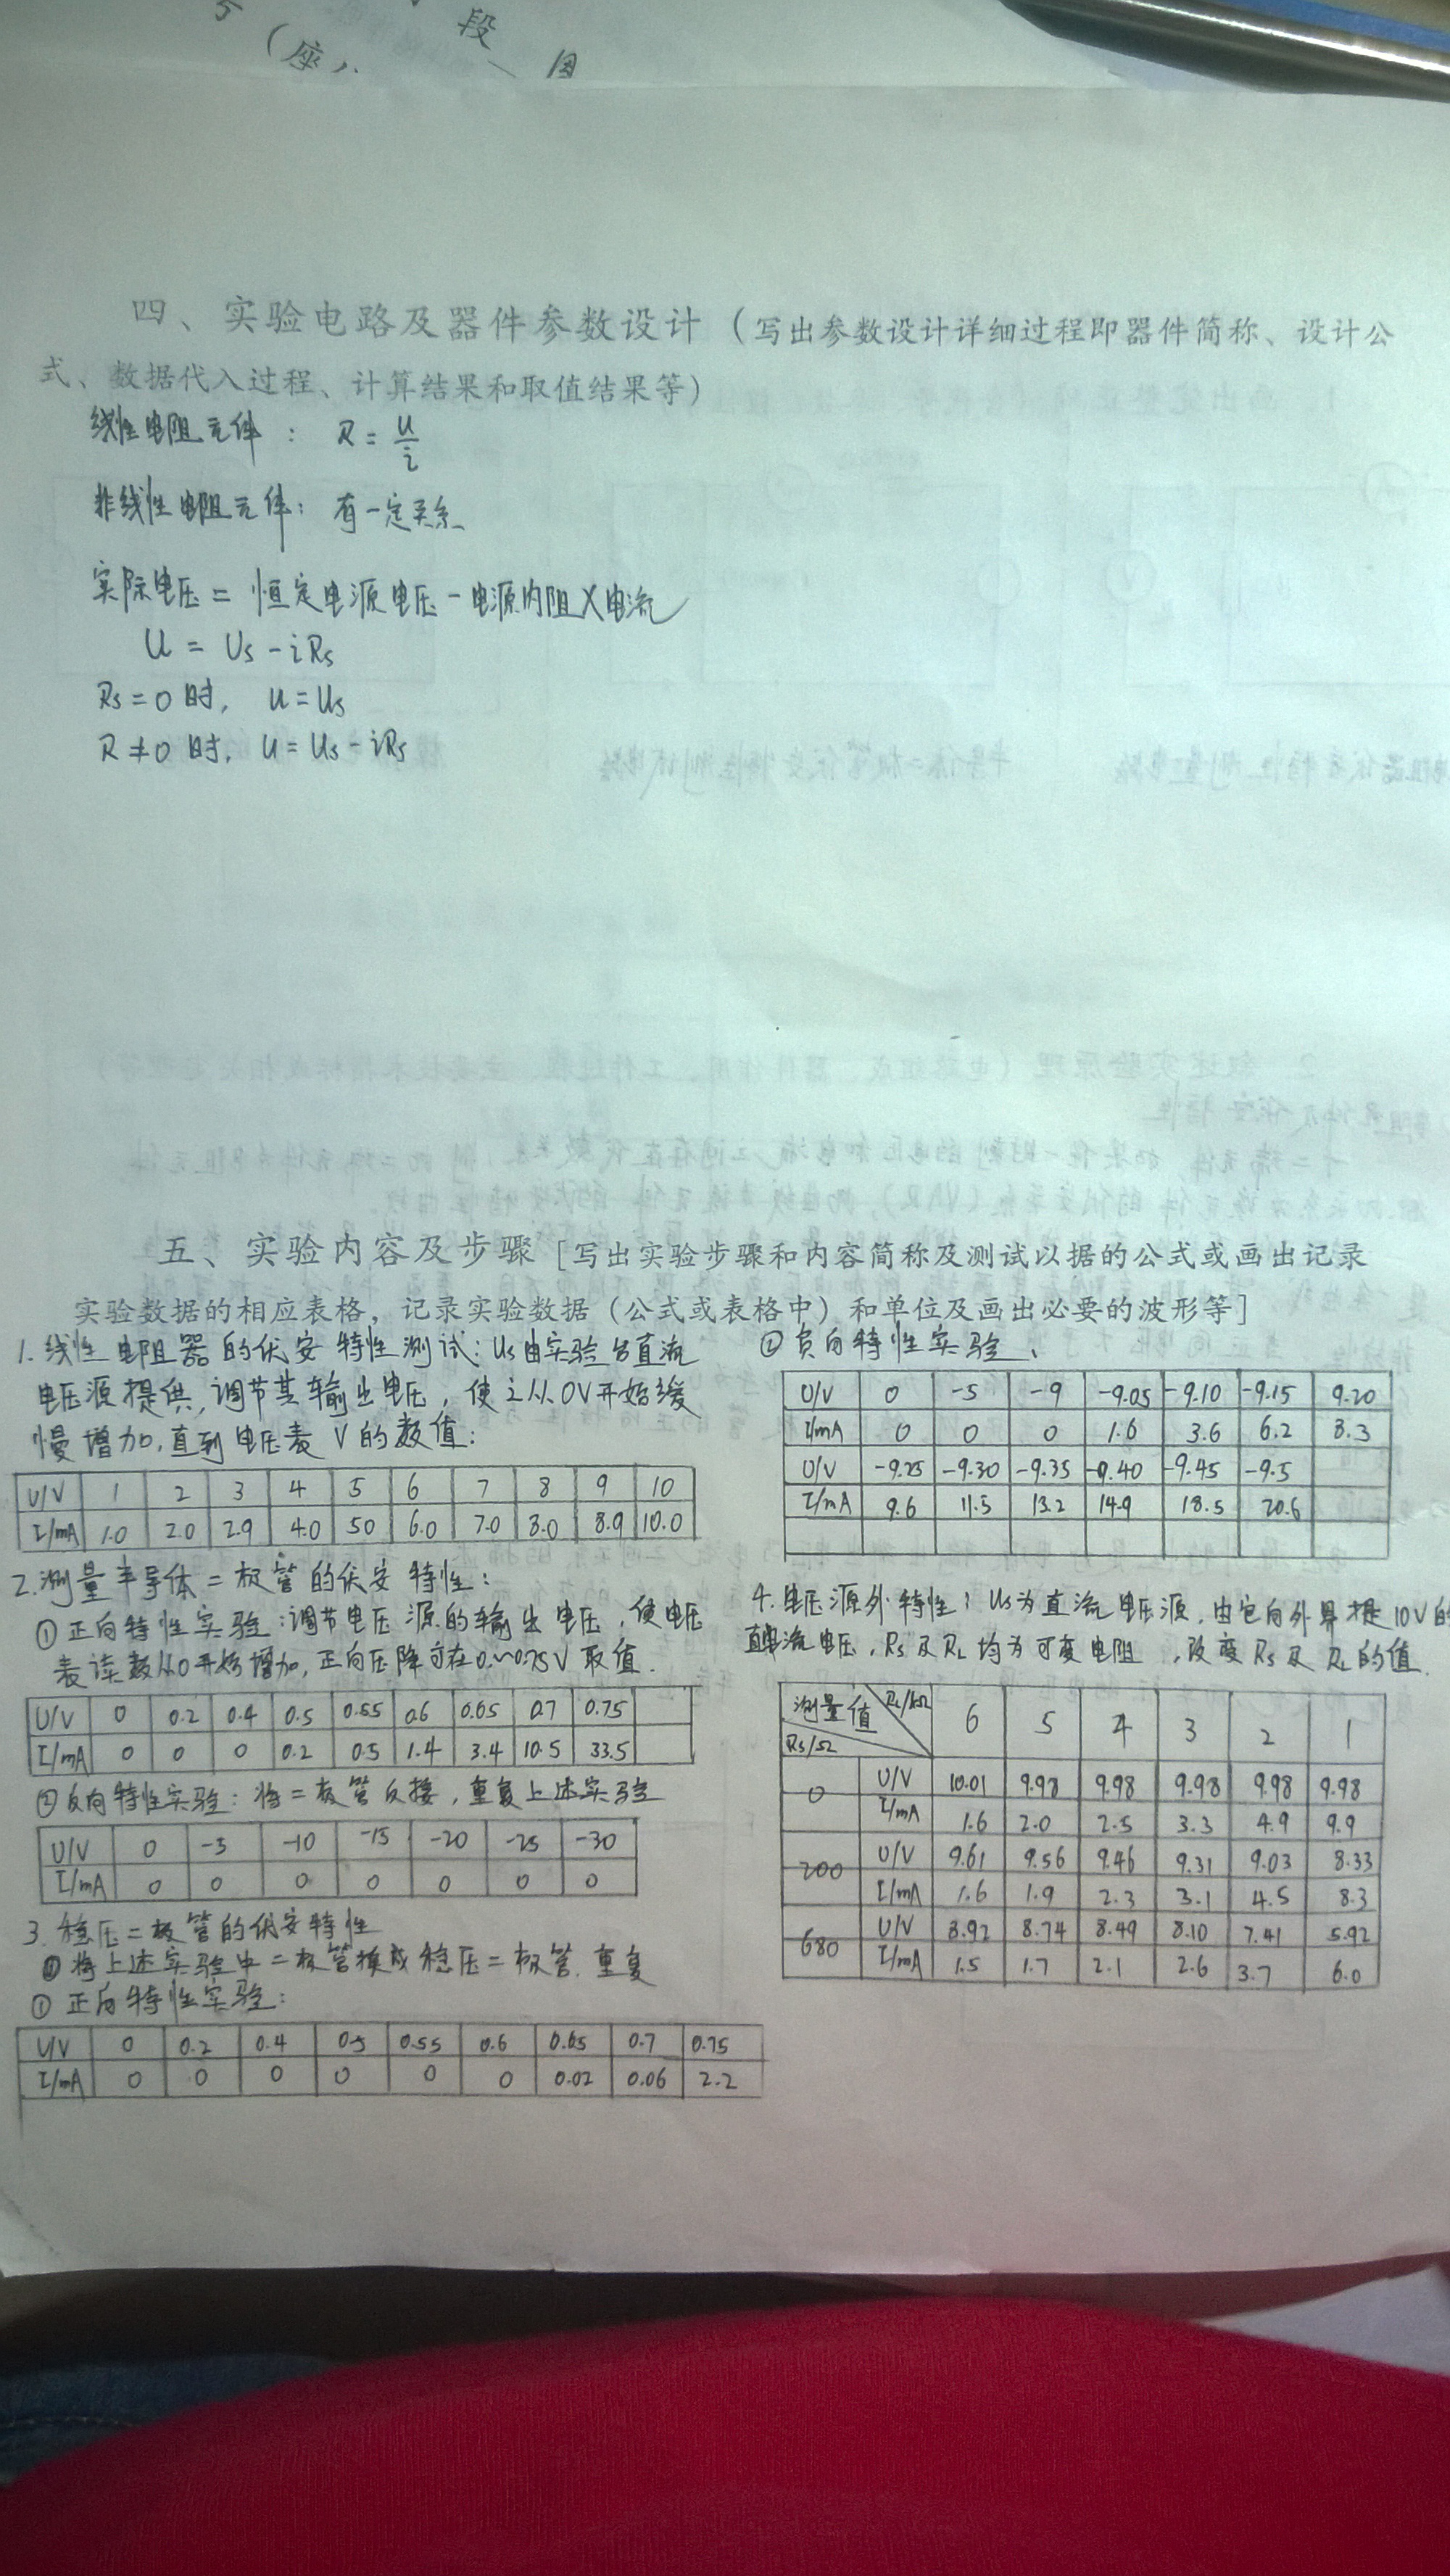 段
(座
四、实验电路及器件参数设计（写出参数设计详细过程即器件简称、设计公
式、数据代入过程、计算结果和取值结果等）
线性电阻元件： R = u/i
非线性电阻元件：有一定关系
实际电压 = 恒定电源电压 - 电源内阻×电流
U = Us - iRs
Rs = 0 时， u = Us
R ≠ 0 时， u = Us - iRs
五、实验内容及步骤 [写出实验步骤和内容简称及测试以据的公式或画出记录
实验数据的相应表格，记录实验数据（公式或表格中）和单位及画出必要的波形等]
1. 线性电阻器的伏安特性测试：Us由实验台直流
电压源提供，调节其输出电压，使之从0V开始缓
慢增加，直到电压表V的数值：
U/V 1 2 3 4 5 6 7 8 9 10
I/mA 1.0 2.0 2.9 4.0 50 6.0 7.0 8.0 8.9 10.0
2. 测量半导体二极管的伏安特性：
① 正向特性实验：调节电压源的输出电压，使电压
表读数从0开始增加，正向压降可在0.~0.75V取值.
U/V 0 0.2 0.4 0.5 0.55 0.6 0.65 0.7 0.75
I/mA 0 0 0 0.2 0.5 1.4 3.4 10.5 33.5
② 反向特性实验：将二极管反接，重复上述实验
U/V 0 -5 -10 -15 -20 -25 -30
I/mA 0 0 0 0 0 0 0
3. 稳压二极管的伏安特性
将上述实验中二极管换成稳压二极管.重复
① 正向特性实验：
U/V 0 0.2 0.4 0.5 0.55 0.6 0.65 0.7 0.75
I/mA 0 0 0 0 0 0 0.02 0.06 2.2
② 负向特性实验、
U/V 0 -5 -9 -9.05 -9.10 -9.15 9.20
I/mA 0 0 0 1.6 3.6 6.2 8.3
U/V -9.25 -9.30 -9.35 -9.40 -9.45 -9.5
I/mA 9.6 11.5 13.2 14.9 18.5 20.6
4. 电压源外特性：Us为直流电压源，由它向外界提10V的
直流电压，Rs及RL均为可变电阻，改变Rs及RL的值.
测量值 RL/kΩ 6 5 4 3 2 1
Rs/Ω
0 U/V 10.01 9.98 9.98 9.98 9.98 9.98
I/mA 1.6 2.0 2.5 3.3 4.9 9.9
200 U/V 9.61 9.56 9.46 9.31 9.03 8.33
I/mA 1.6 1.9 2.3 3.1 4.5 8.3
680 U/V 8.92 8.74 8.49 8.10 7.41 5.92
I/mA 1.5 1.7 2.1 2.6 3.7 6.0